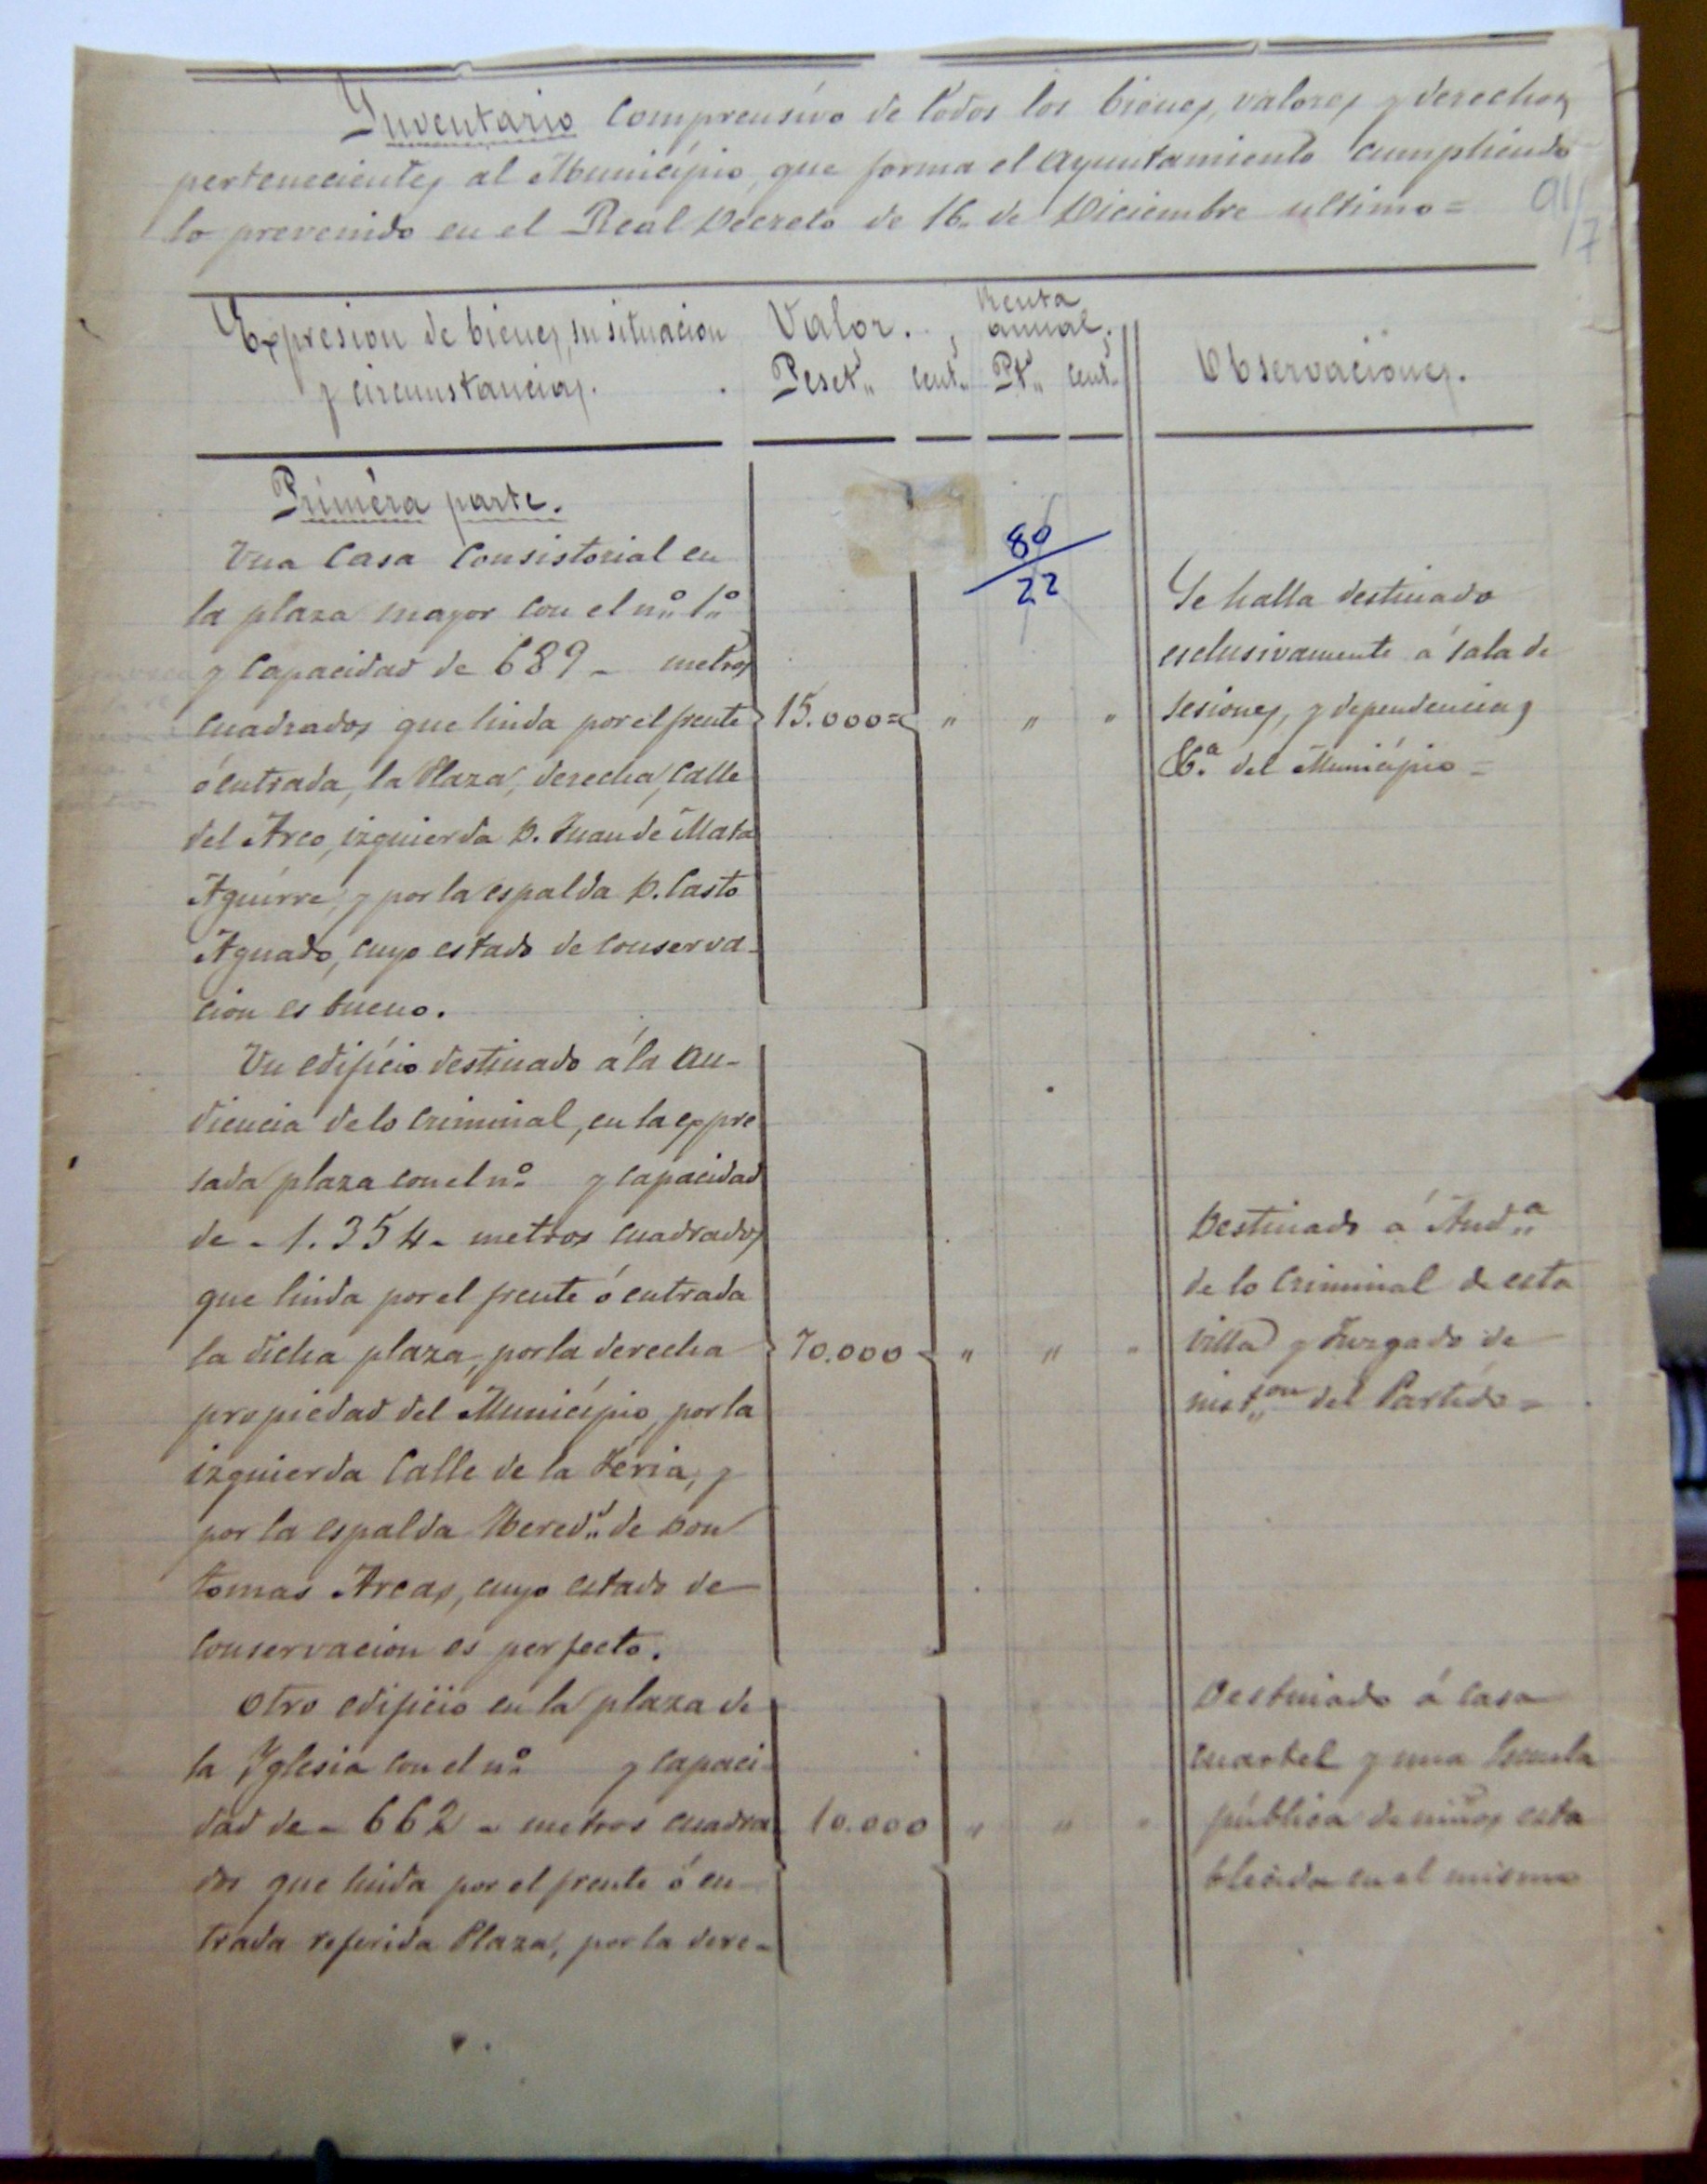 Inventario Comprensivo de todos los bienes, valores y derechos
pertenecientes al Município, que forma el Ayuntamiento cumpliendo
lo prevenido en el Real Decreto de 16. de Diciembre ultimo =
91/7
Expresion de bienes, su situacion
y circunstancias.
Valor.
Peset.s cent.s
Renta
anual.
Pt.s cent.s
Observaciones.
Priméra parte.
Una Casa Consistorial en
la plaza mayor con el nº 1º
y Capacidad de 689 - metros
cuadrados que linda por el frente
ó entrada, la Plaza, derecha, Calle
del Arco, izquierda D. Juan de Mata
Aguirre, y por la espalda D. Casto
Aguado, cuyo estado de conserva-
cion es bueno.
15.000 = " " "
80/22
Se halla destinado
esclusivamente á sala de
sesiones, y dependencias
&.a del Município =
Un edificio destinado á la Au-
diencia de lo Criminal, en la expre
sada plaza con el nº y capacidad
de - 1.354 - metros cuadrados
que linda por el frente ó entrada
la dicha plaza, por la derecha
propiedad del Município, por la
izquierda Calle de la Féria, y
por la espalda Hered.s de Don
Tomas Arcas, cuyo estado de
Conservacion es perfecto.
70.000 " " "
Destinado á Aud.a
de lo Criminal de esta
villa y Juzgado de
inst.on del Partido =
Otro edificio en la plaza de
la Yglesia con el nº y capaci-
dad de - 662 - metros cuadra
dos que linda por el frente ó en-
trada referida Plaza, por la dere-
10.000 " " "
Destinado á casa
cuartel y una Escuela
pública de niños esta
blecida en el mismo